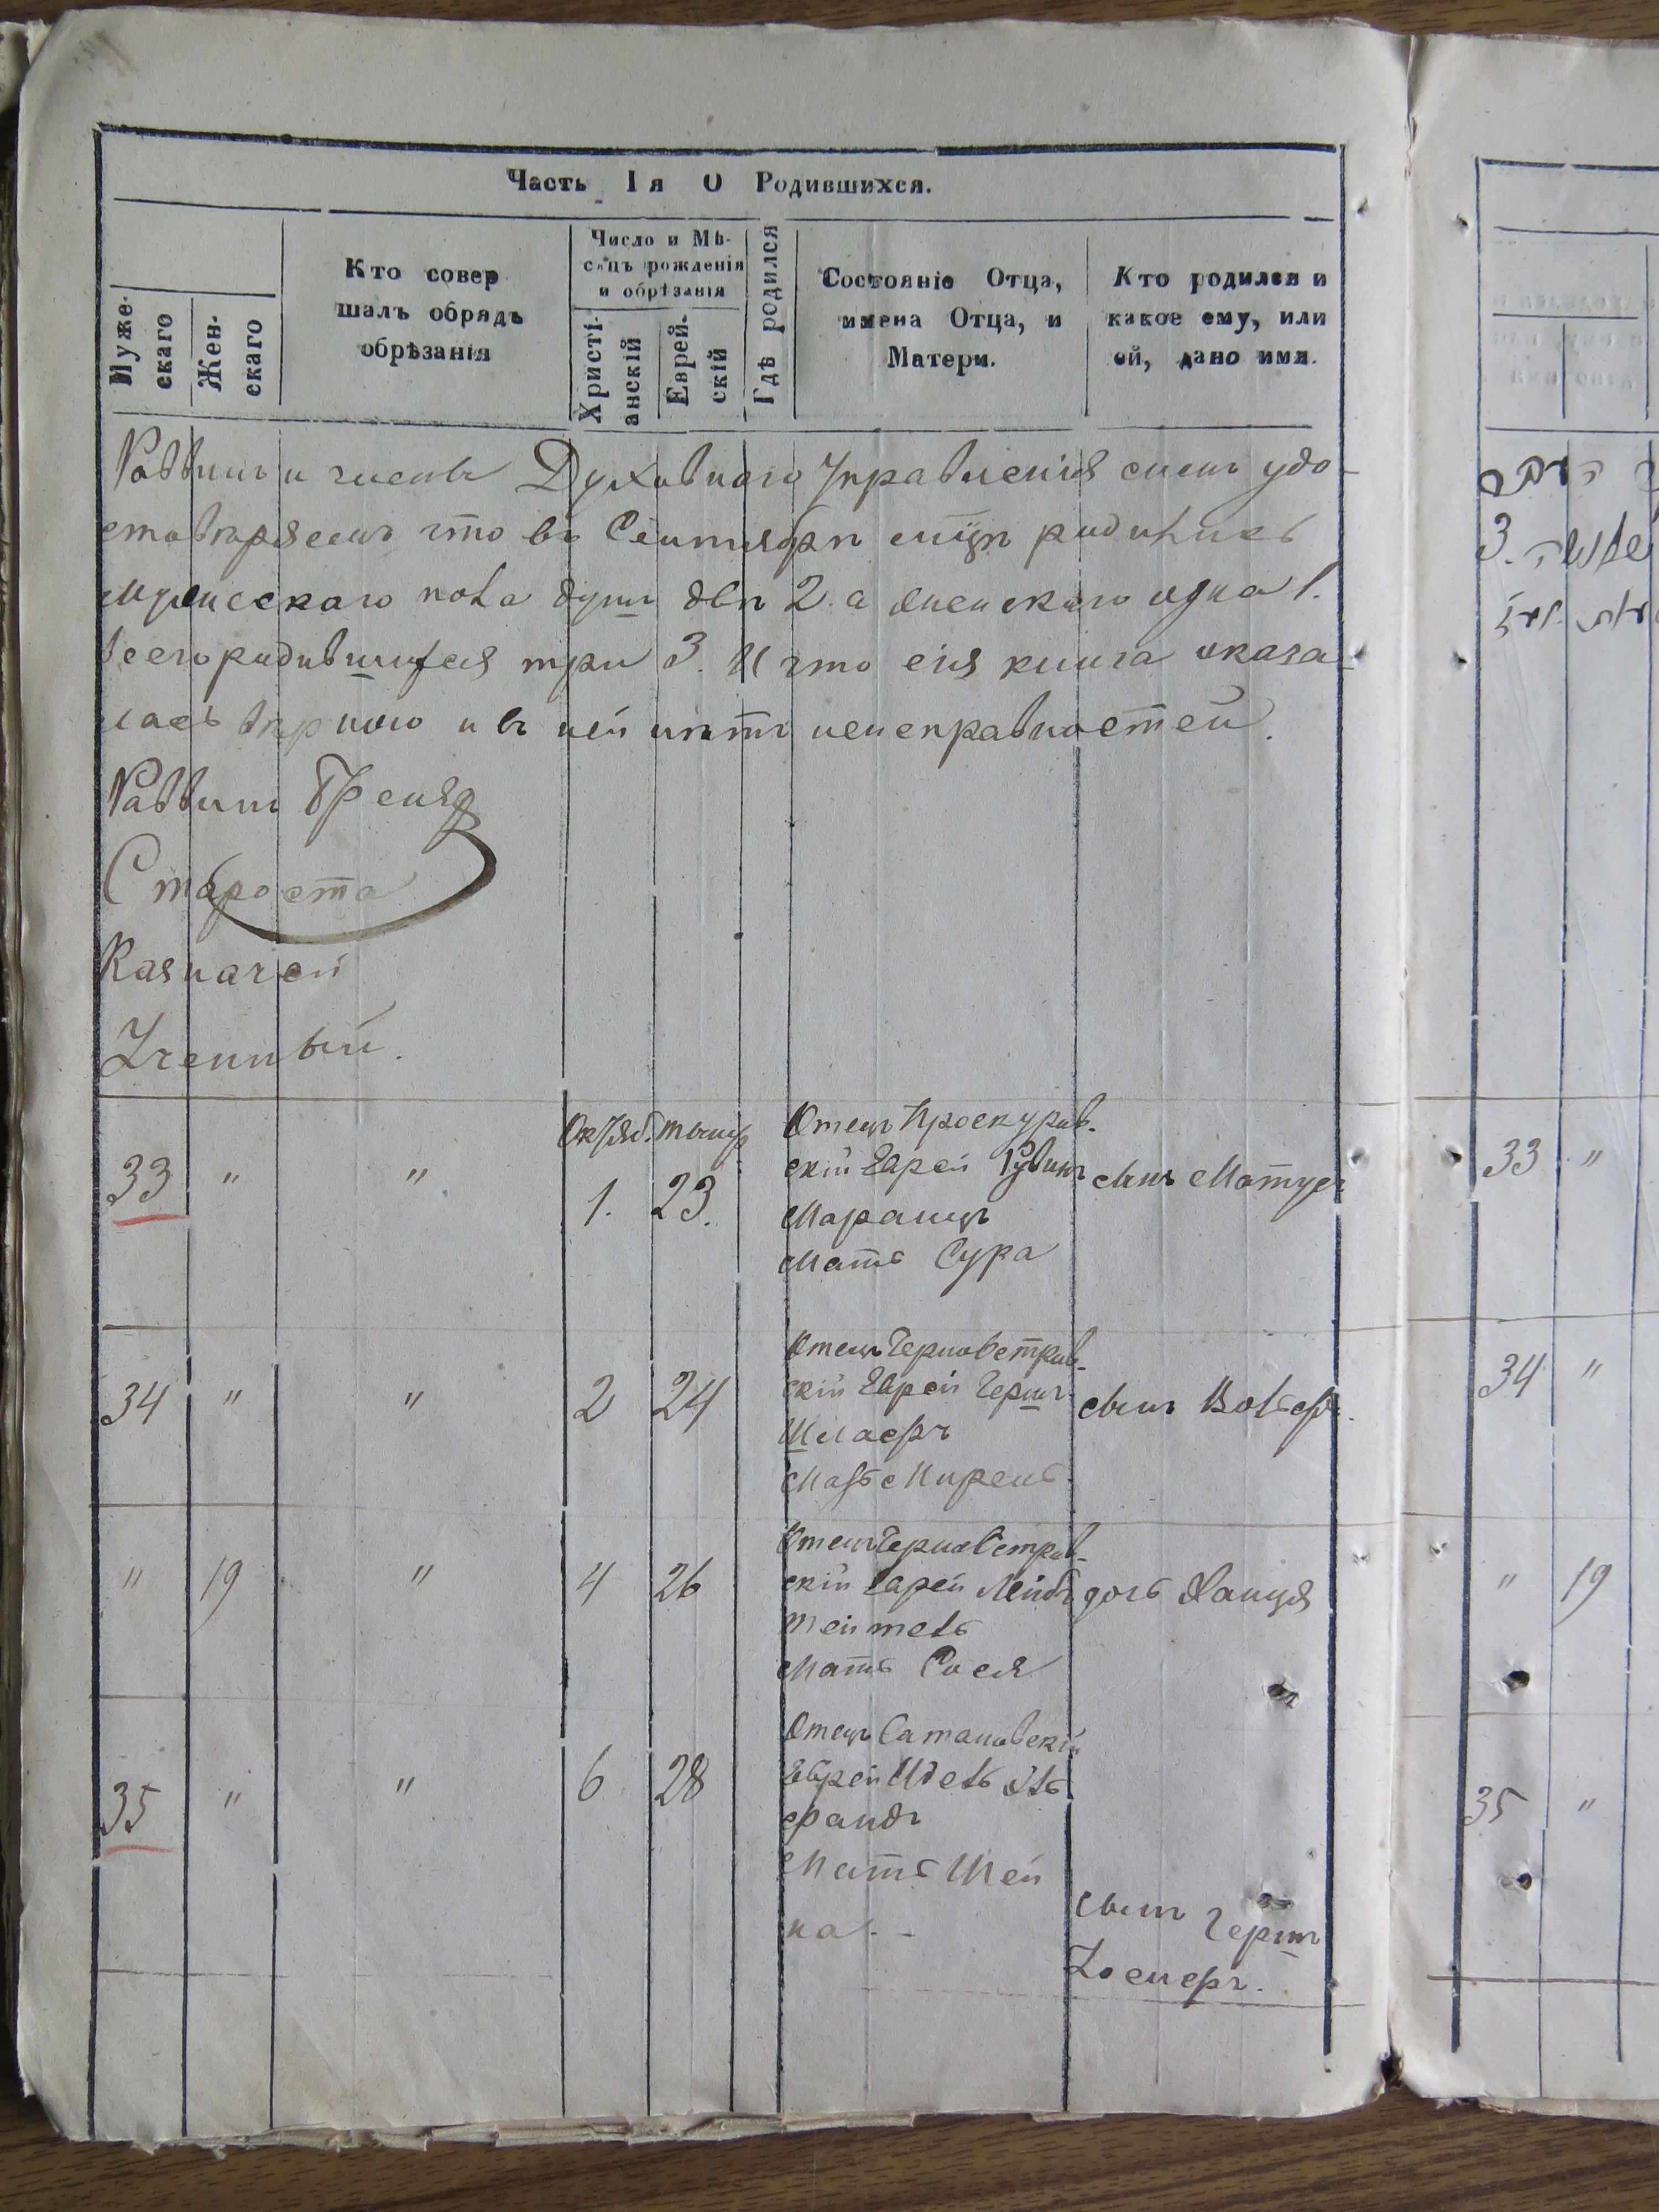 Часть Iя О Родившихся.
Муже-
скаго
Жен-
скаго
Кто совер
шалъ обрядъ
обрѣзанія
Число и Мѣ-
сяцъ рожденія
и обрѣзанія
Христі-
анскій
Еврей-
скій
Гдѣ родился
Состояніе Отца,
имена Отца, и
Матери.
Кто родился и
какое ему, или
ей, дано имя.
Раввинъ и члены Духовнаго Управленія симъ удо-
стовѣряемъ что въ Сентябрѣ мѣсяцѣ родилось
мужескаго пола душъ двѣ 2. а женскаго одна 1.
всего родившихся три 3. И что сія книга оказа-
лась вѣрною и въ ней нѣтъ неисправностей.
Раввинъ
Староста
Казначей
Ученный.
Октяб.
33 " " 1. 23.
Отецъ Проскуров-
скій Еврей Рувинъ
Маранцъ
Мать Сура
сынъ Мотусъ
34 " " 2 24
Отецъ Черноостров-
скій Еврей Гершъ
Шмаеръ
Мать Мирель
сынъ Вольфъ.
" 19 " 4 26
Отецъ Черноостров-
скій Еврей Лейбъ
Тейтель
Мать Сося
дочь Ханця
35 " " 6 28
Отецъ Сатановскій
Еврей Идель
Мать Шей
на.
сынъ Гершъ
33 "
34 "
" 19
35 "